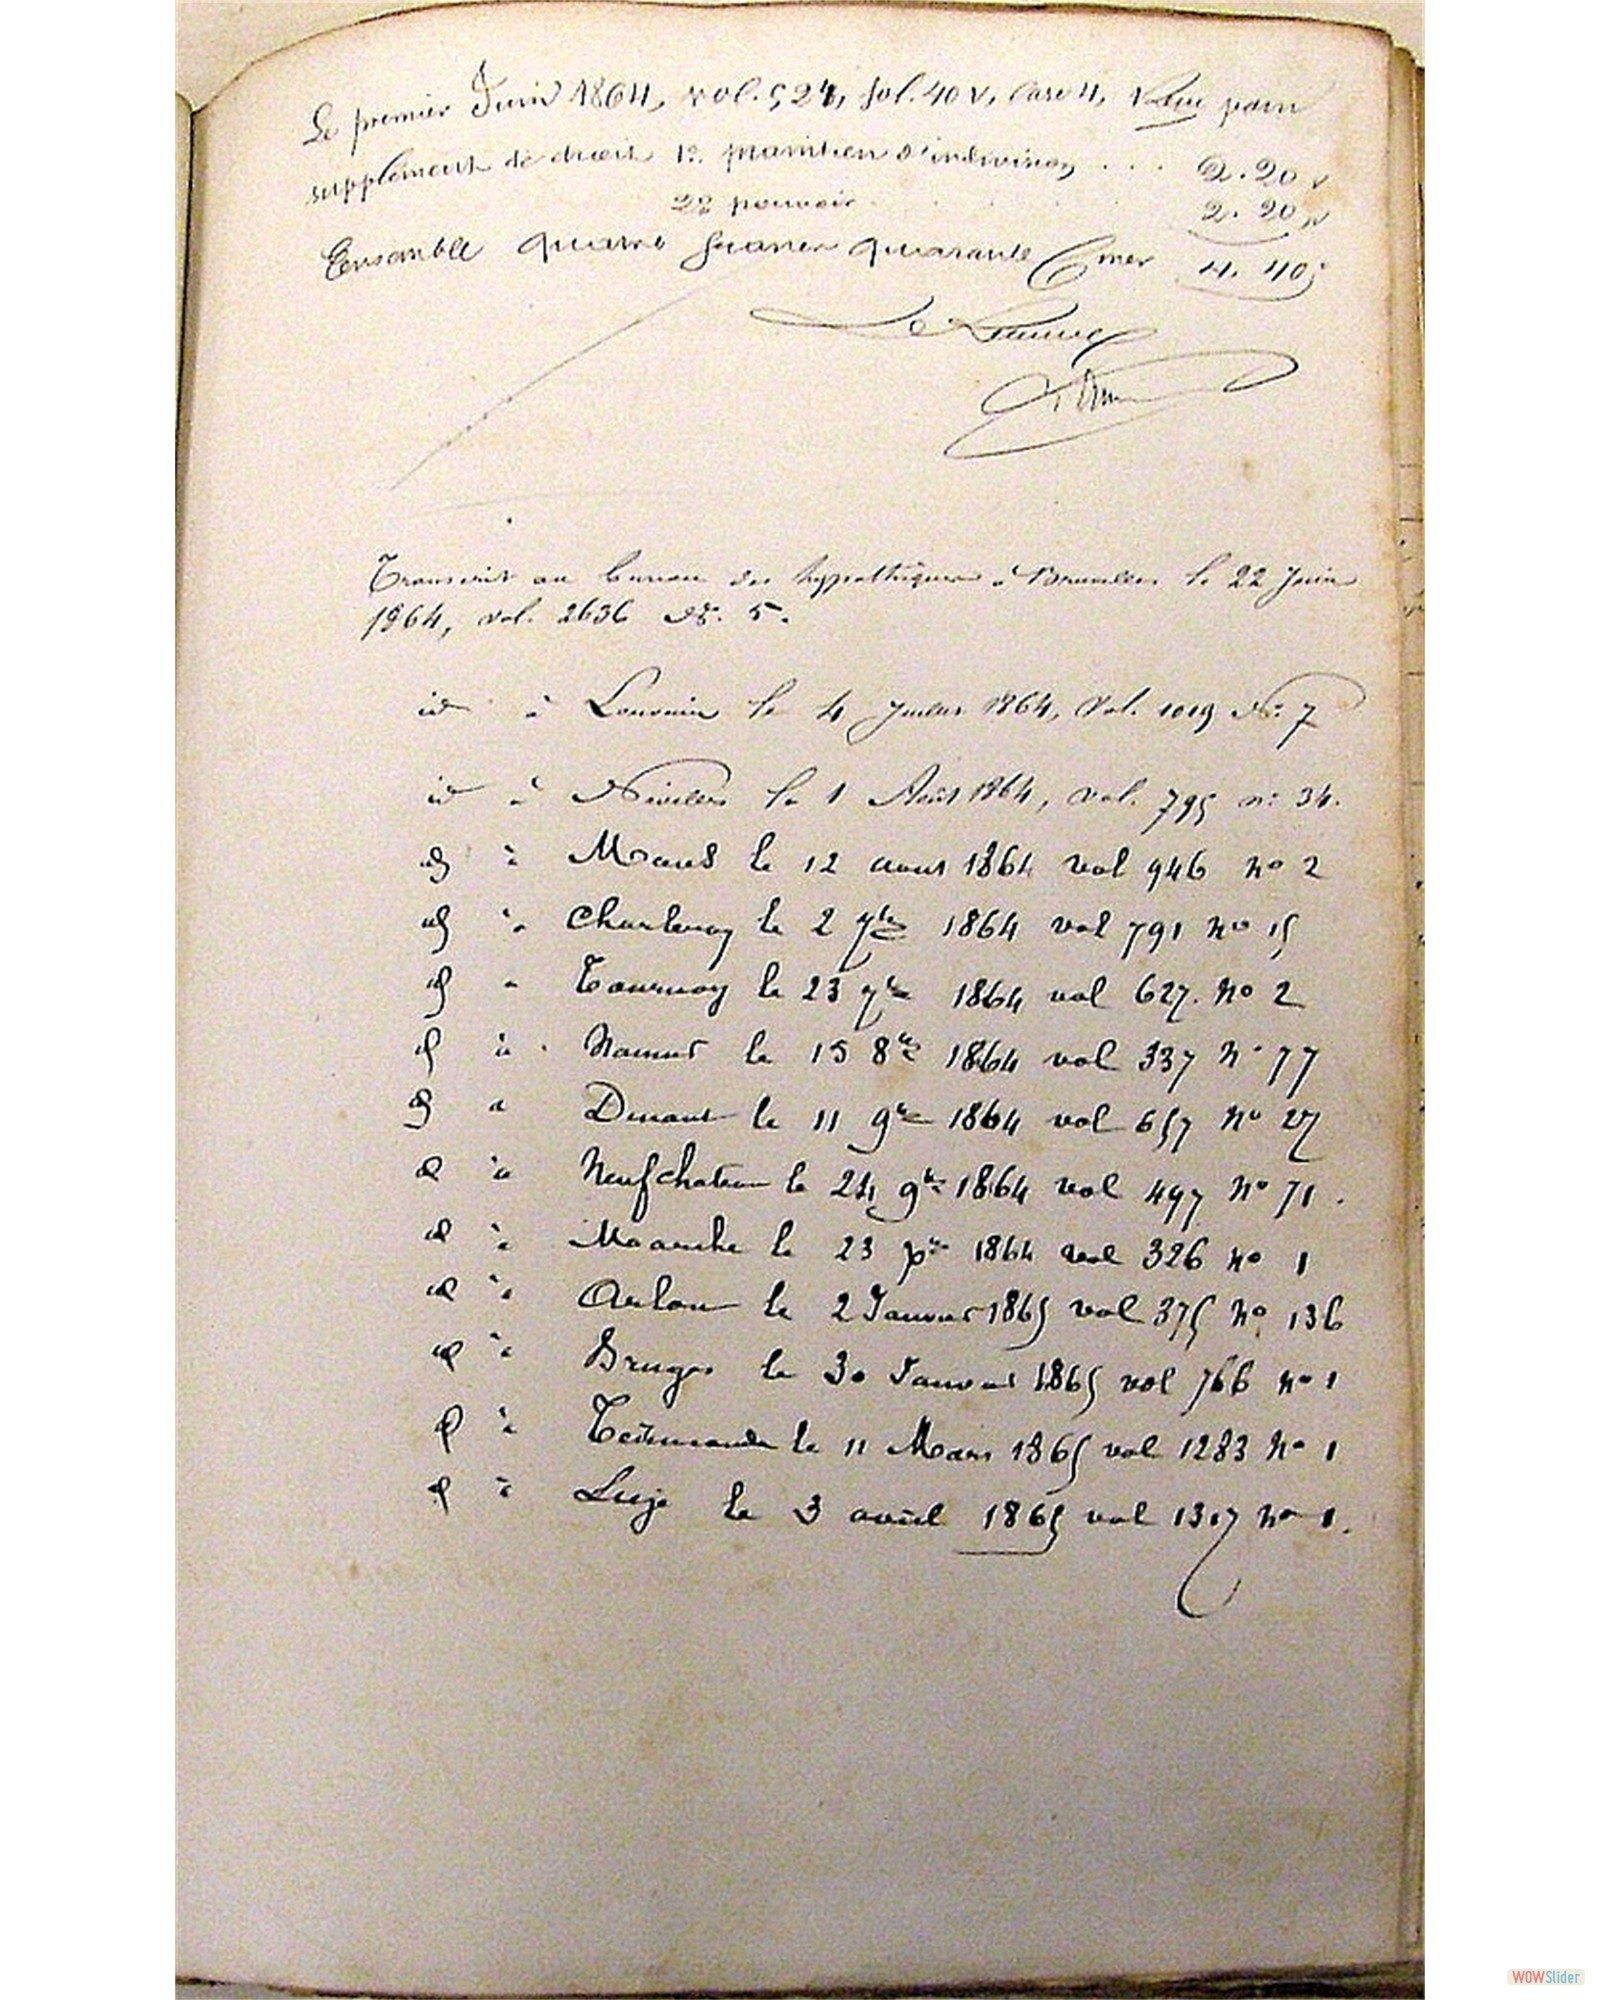 Le premier Juin 1864, vol. 524, fol. 40 v, case 4, Reçu pour
supplément de droit 1º. maintien d'indivision . . . 2.20
2º pouvoir . . . 2.20
Ensemble quatre francs quarante Cmes 4.40
Le Receveur
Transcrit au bureau des hypothèques à Bruxelles le 22 Juin
1864, vol. 2636 Nº. 5.
id à Louvain le 4 Juillet 1864, Vol. 1019 Nº. 7
id à Nivelles le 1 Août 1864, vol. 795 nº 34.
id à Mons le 12 aout 1864 vol 946 nº 2
id à Charleroy le 2 7bre 1864 vol 791 nº 15
id à Tournay le 23 7bre 1864 vol 627. nº 2
id à Namur le 15 8bre 1864 vol 337 nº 77
id à Dinant le 11 9bre 1864 vol 657 nº 27
id à Neufchateau le 24 9bre 1864 vol 497 nº 71.
id à Marche le 23 1864 vol 326 nº 1
id à Arlon le 2 Janvier 1865 vol 375 nº 136
id à Bruges le 30 Janvier 1865 vol 766 nº 1
id à le 11 Mars 1865 vol 1283 nº 1
id à Liège le 3 avril 1865 vol 1317 nº 1.
WOWSlider